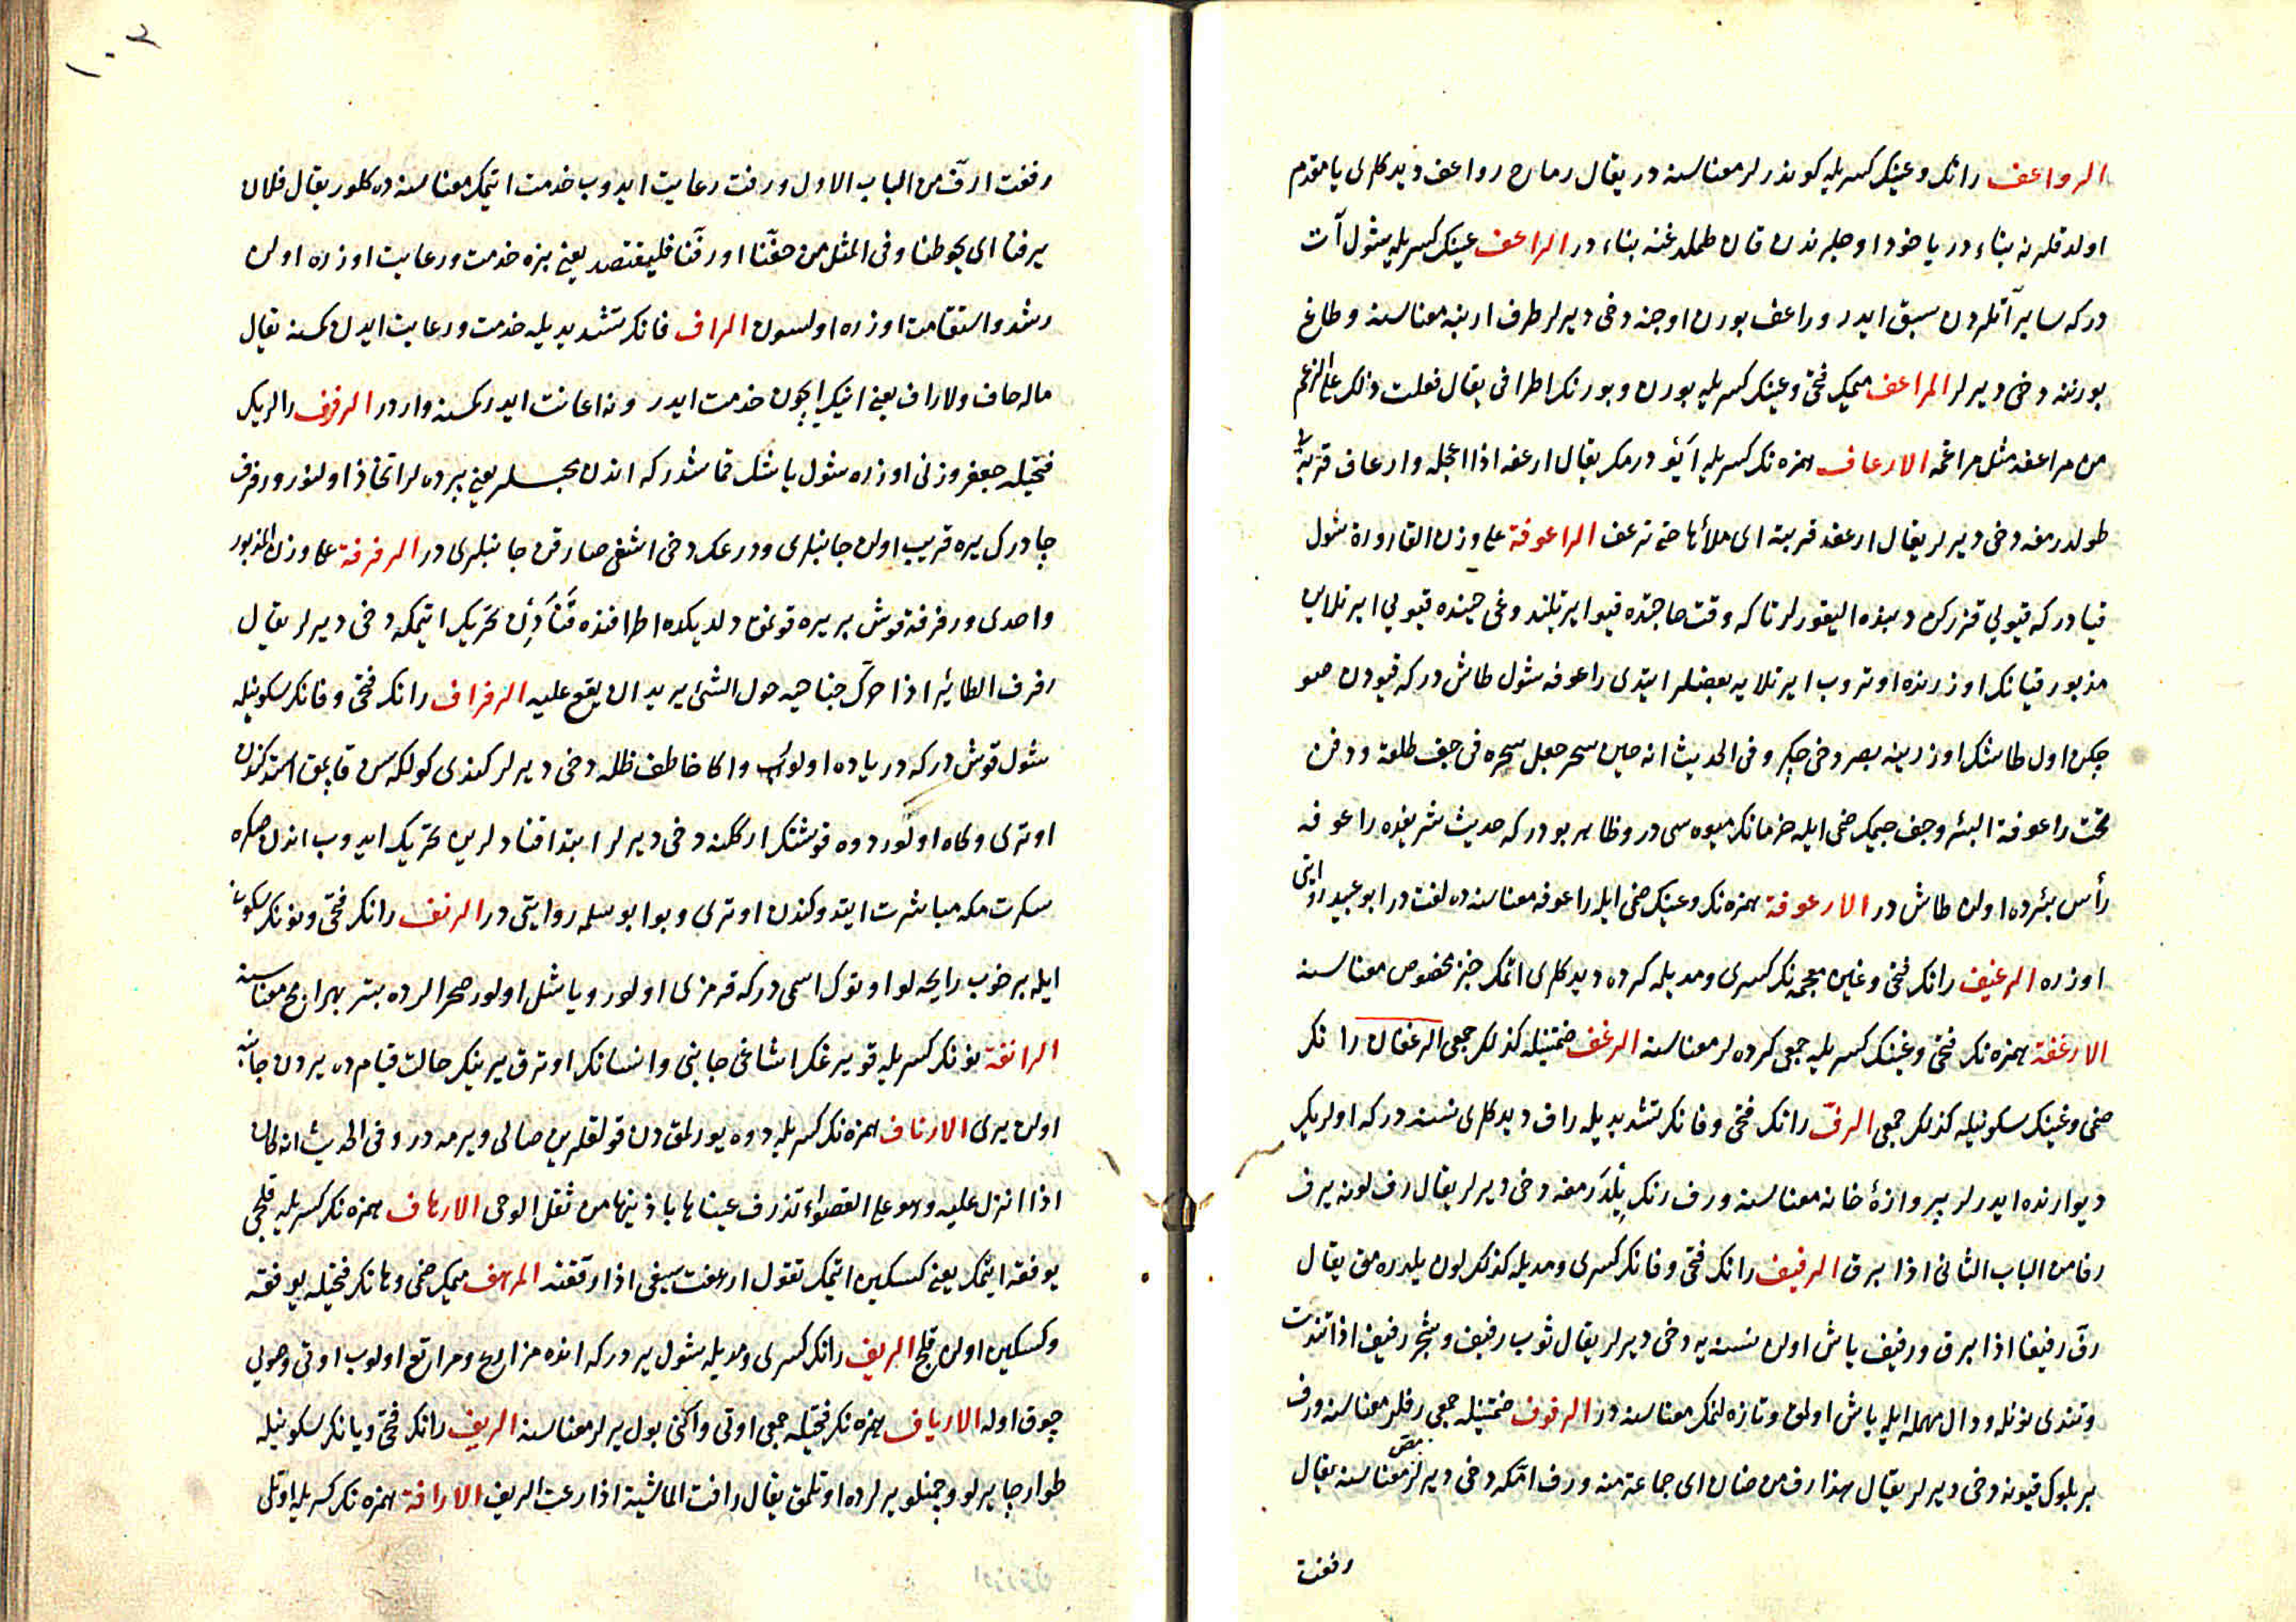 الرواعف رانك وعينك كسريله كوندرلر معناسنه در يقال رماح رواعف ديدكلرى يا مقدم
اولدقلرنه بناء در ياخود اوجلرندن قان طملدغنه بناء در الراعف عينك كسريله شول آت
دركه ساير آتلردن سبق ايدر وراعف بورن اوجنه دخى ديرلر طرف ارنبه معناسنه وطاغ
بورننه دخى ديرلر المراعف ميمك فتحى وعينك كسريله بورن وبورنك اطرافى يقال فعلت ذلك على الرغم
من مراعفه مثل مراغمه الارعاف همزه نك كسريله ايودرمك يقال ارعفه اذا اعجله وارعاف قربه يى
طولدرمغه دخى ديرلر يقال ارعف قربته اى ملأها حتى ترعف الراعوفة على وزن القارورة شول
قيادركه قيويى قزركن ديبنده اليقورلر تاكه وقت حاجتده قيو ايرتلندوغى حينده قيويى ايرتلاين
مذبور قيانك اوزرنده اوتروب ايرتلايه بعضلر ايتدى راعوفه شول طاش دركه قيودن صو
چكن اول طاشك اوزرينه بصر دخى چكر وفى الحديث انه حين سحر جعل سحره فى جف طلعة ودفن
تحت راعوفة البئر وجف جيمك ضمى ايله خرمانك ميوه سى در وظاهر بودركه حديث شريفده راعوفه
رأس بئرده اولان طاش در الارعوفة همزه نك وعينك ضمى ايله راعوفه معناسنده لغت در ابو عبيد روايتى
اوزره الرغيف رانك فتحى وغين معجمه نك كسرى ومديله كرده ديدكلرى اتمك خبز مخصوص معناسنه
الارغفة همزه نك فتحى وغينك كسريله جمعى كرده لر معناسنه الرغف ضمتينله كذلك جمعى الرغفان رانك
ضمى وغينك سكونيله كذلك جمعى الرفّ رانك فتحى وفانك تشديديله راف ديدكلرى نسنه دركه اولريك
ديوارنده ايدرلر پروازهٔ خانه معناسنه ورف رنك يلدرمغه دخى ديرلر يقال رف لونه يرف
رفا من الباب الثانى اذا برق الرفيف رانك فتحى وفانك كسرى ومديله كذلك لون يلدره مق يقال
رفّ رفيفا اذا برق ورفيف ياش اولان نسنه يه دخى ديرلر يقال ثوب رفيف وشجر رفيف اذا تندت
وتندى نونله ودال مهمله ايله ياش اولمق وتازه لنمك معناسنه در الرفوف ضمتينله جمعى رفلر معناسنه ورف
بر بلوك قيونه دخى ديرلر يقال هذا رف من ضان اى جماعة منه ورف امكه دخى ديرلر مص معناسنه يقال
رففت
١٠٢
رففت ارفّ من الباب الاول ورفت رعايت ايدوب خدمت ايتمك معناسنده كلور يقال فلان
يرفنا اى يحوطنا وفى المثل من حفّنا اورفّنا فليقتصد يعنى بزه خدمت ورعايت اوزره اولن
رشد واستقامت اوزره اولسون الراف فانك تشديديله خدمت ورعايت ايدن كمسنه يقال
ماله حاف ولا راف يعنى انيك ايچون خدمت ايدر ونه اعانت ايدر كمسنه واردر الرفرف رالريك
فتحيله جعفر وزنى اوزره شول ياشل قماشدركه اندن مجلسلر يعنى پرده لر اتخاذ اولنور ورفرف
چادرك يره قريب اولن جانبلرى ودرعك دخى اشغى صارقن جانبلرى در الرفرفة على وزن المذبور
واحدى ورفرفه قوش بر يره قونمق دلديكده اطرافنده قنادلرن تحريك ايتمكه دخى ديرلر يقال
رفرف الطائر اذا حرّك جناحيه حول الشئ يريد ان يقع عليه الرفراف رانك فتحى وفانك سكونيله
شول قوش دركه درياده اولور واكا خاطف ظله دخى ديرلر كندى كولكه سن قاپمق استدكندن
اوترى وكاه اولور دوه قوشنك اركلنه دخى ديرلر ابتدا قنادلرين تحريك ايدوب اندن صكره
سكرتمكه مباشرت ايتدوكندن اوترى وبو ابو سلمه روايتى در الرنف رانك فتحى ونونك سكونى
ايله بر خوب رايحه لو اوتوك اسمى دركه قرمزى اولور وياشل اولور صحرالرده بتر بهرامج معناسنه
الرانفة نونك كسريله قويرغك اشاغى جانبى وانسانك اوترق يرينك حالت قيامده يردن جانبه
اولن يرى الارناف همزه نك كسريله دوه يورلمقدن قولقلرين صالى ويرمه در وفى الحديث انه كان
اذا انزل عليه وهو على القصواء تذرف عيناها باذنيها من ثقل الوحى الارهاف همزه نك كسريله قلجى
يوفقه ايتمك يعنى كسكين ايتمك تقول ارهفت سيفى اذا رققته المرهف ميمك ضمى وهانك فتحيله يوفقه
وكسكين اولن قلج الريف رانك كسرى ومديله شول يردركه انده مزارع ومراتع اولوب اوتى وصويى
چوق اوله الارياف همزه نك فتحيله جمعى اوتى واكنى بول يرلر معناسنه الريف رانك فتحى ويانك سكونيله
طوار چايرلو وچمنلو يرلرده اوتلمق يقال رافت الماشية اذا رعت الريف الارافة همزه نك كسريله اوتلى